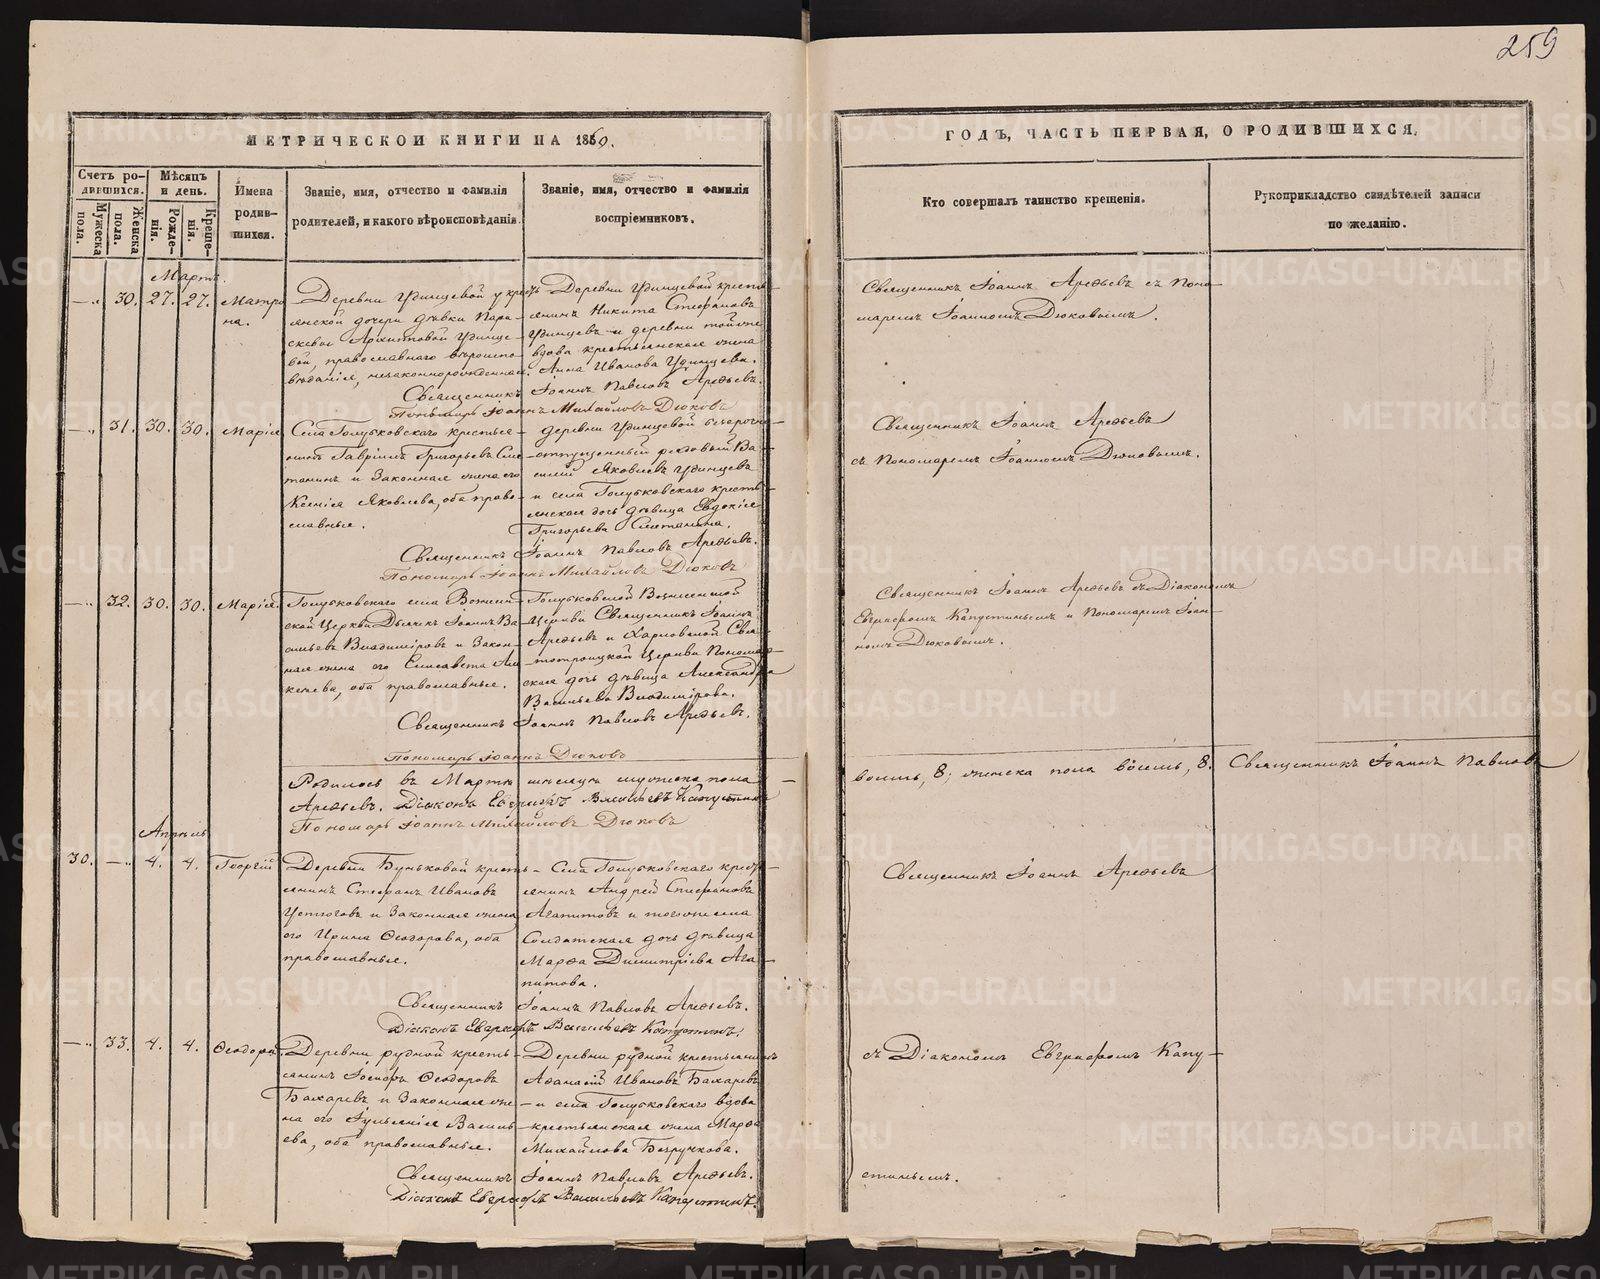 259
МЕТРИЧЕСКОЙ КНИГИ НА 1860.
ГОДЪ, ЧАСТЬ ПЕРВАЯ, О РОДИВШИХСЯ.
Счетъ родившихся.
Мѣсяцъ и день.
Имена родившихся.
Званіе, имя, отчество и фамилія родителей, и какого вѣроисповѣданія.
Званіе, имя, отчество и фамилія воспріемниковъ.
Кто совершалъ таинство крещенія.
Рукоприкладство свидѣтелей записи по желанію.
Мужеска пола.
Женска пола.
Рожденія.
Крещенія.
Мартъ.
30. 27. 27. Матрона.
Деревни Удинцевой у крестьянской дочери дѣвки Параскевы Удинцевой, православнаго вѣроисповѣданія, незаконнорожденная.
Деревни Удинцевой крестьянинъ Никита Стефановъ Удинцевъ и деревни тойже вдова крестьянская жена Анна Иванова Удинцева.
Священникъ Іоаннъ Арефьевъ съ Пономаремъ Іоанномъ Дюковымъ.
Священникъ Іоаннъ Павловъ Арефьевъ.
Пономарь Іоаннъ Михайловъ Дюковъ
31. 30. 30. Марія
Села Голубковскаго крестьянинъ Гавріилъ Григорьевъ Сметанинъ и Законная жена его Ксенія Яковлева, оба православные.
деревни Удинцевой безсрочноотпущенный рядовый Василий Яковлевъ Удинцевъ и села Голубковскаго крестьянская дочь дѣвица Евдокія Григорьева Сметанина.
Священникъ Іоаннъ Арефьевъ съ Пономаремъ Іоанномъ Дюковымъ.
Священникъ Іоаннъ Павловъ Арефьевъ.
Пономарь Іоаннъ Михайловъ Дюковъ
32. 30. 30. Марія
Голубковскаго села Вознесенской Церкви Дьячекъ Іоаннъ Васильевъ Владиміровъ и Законная жена его Елисавета, оба православные.
Голубковской Вознесенской Церкви Священникъ Іоаннъ Арефьевъ и Харловской Святотроицкой Церкви Пономарская дочь дѣвица Александра Васильева Владимірова.
Священникъ Іоаннъ Арефьевъ съ Діакономъ Евграфомъ Капустинымъ и Пономаремъ Іоанномъ Дюковымъ.
Священникъ Іоаннъ Павловъ Арефьевъ.
Пономарь Іоаннъ Дюковъ
Родилось въ Мартѣ мѣсяцѣ мужеска пола восемь, 8; женска пола восемь, 8. Священникъ Іоаннъ Павловъ
Арефьевъ. Діаконъ Евграфъ Васильевъ Капустинъ
Пономарь Іоаннъ Михайловъ Дюковъ
Апрѣль
30. 4. 4. Георгій
Деревни Буньковой крестьянинъ Стефанъ Ивановъ Устюговъ и Законная жена его Ирина Ѳеодорова, оба православные.
Села Голубковскаго крестьянинъ Андрей Стефановъ Агапитовъ и тогоже села Солдатская дочь дѣвица Марѳа Димитріева Агапитова.
Священникъ Іоаннъ Арефьевъ
Священникъ Іоаннъ Павловъ Арефьевъ.
Діаконъ Евграфъ Васильевъ Капустинъ.
33. 4. 4. Ѳеодора.
Деревни рудной крестьянинъ Іосифъ Ѳеодоровъ Бахаревъ и Законная жена его Іульянія Васильева, оба православные.
Деревни рудной крестьянинъ Аѳанасій Ивановъ Бахаревъ и села Голубковскаго вдова крестьянская жена Марѳа Михайлова Безрукова.
съ Діакономъ Евграфомъ Капустинымъ.
Священникъ Іоаннъ Павловъ Арефьевъ.
Діаконъ Евграфъ Васильевъ Капустинъ.
METRIKI.GASO-URAL.RU